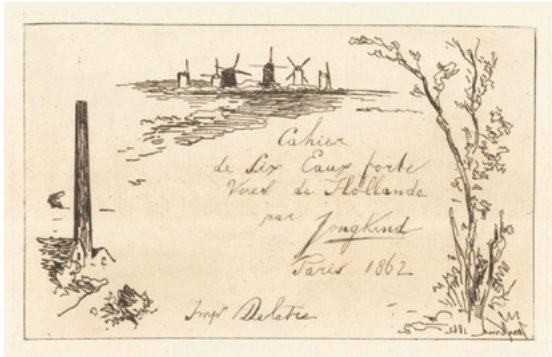 Cahier
de Six Eaux forte
Vues de Hollande
par Jongkind
Paris 1862
Imp Delatre